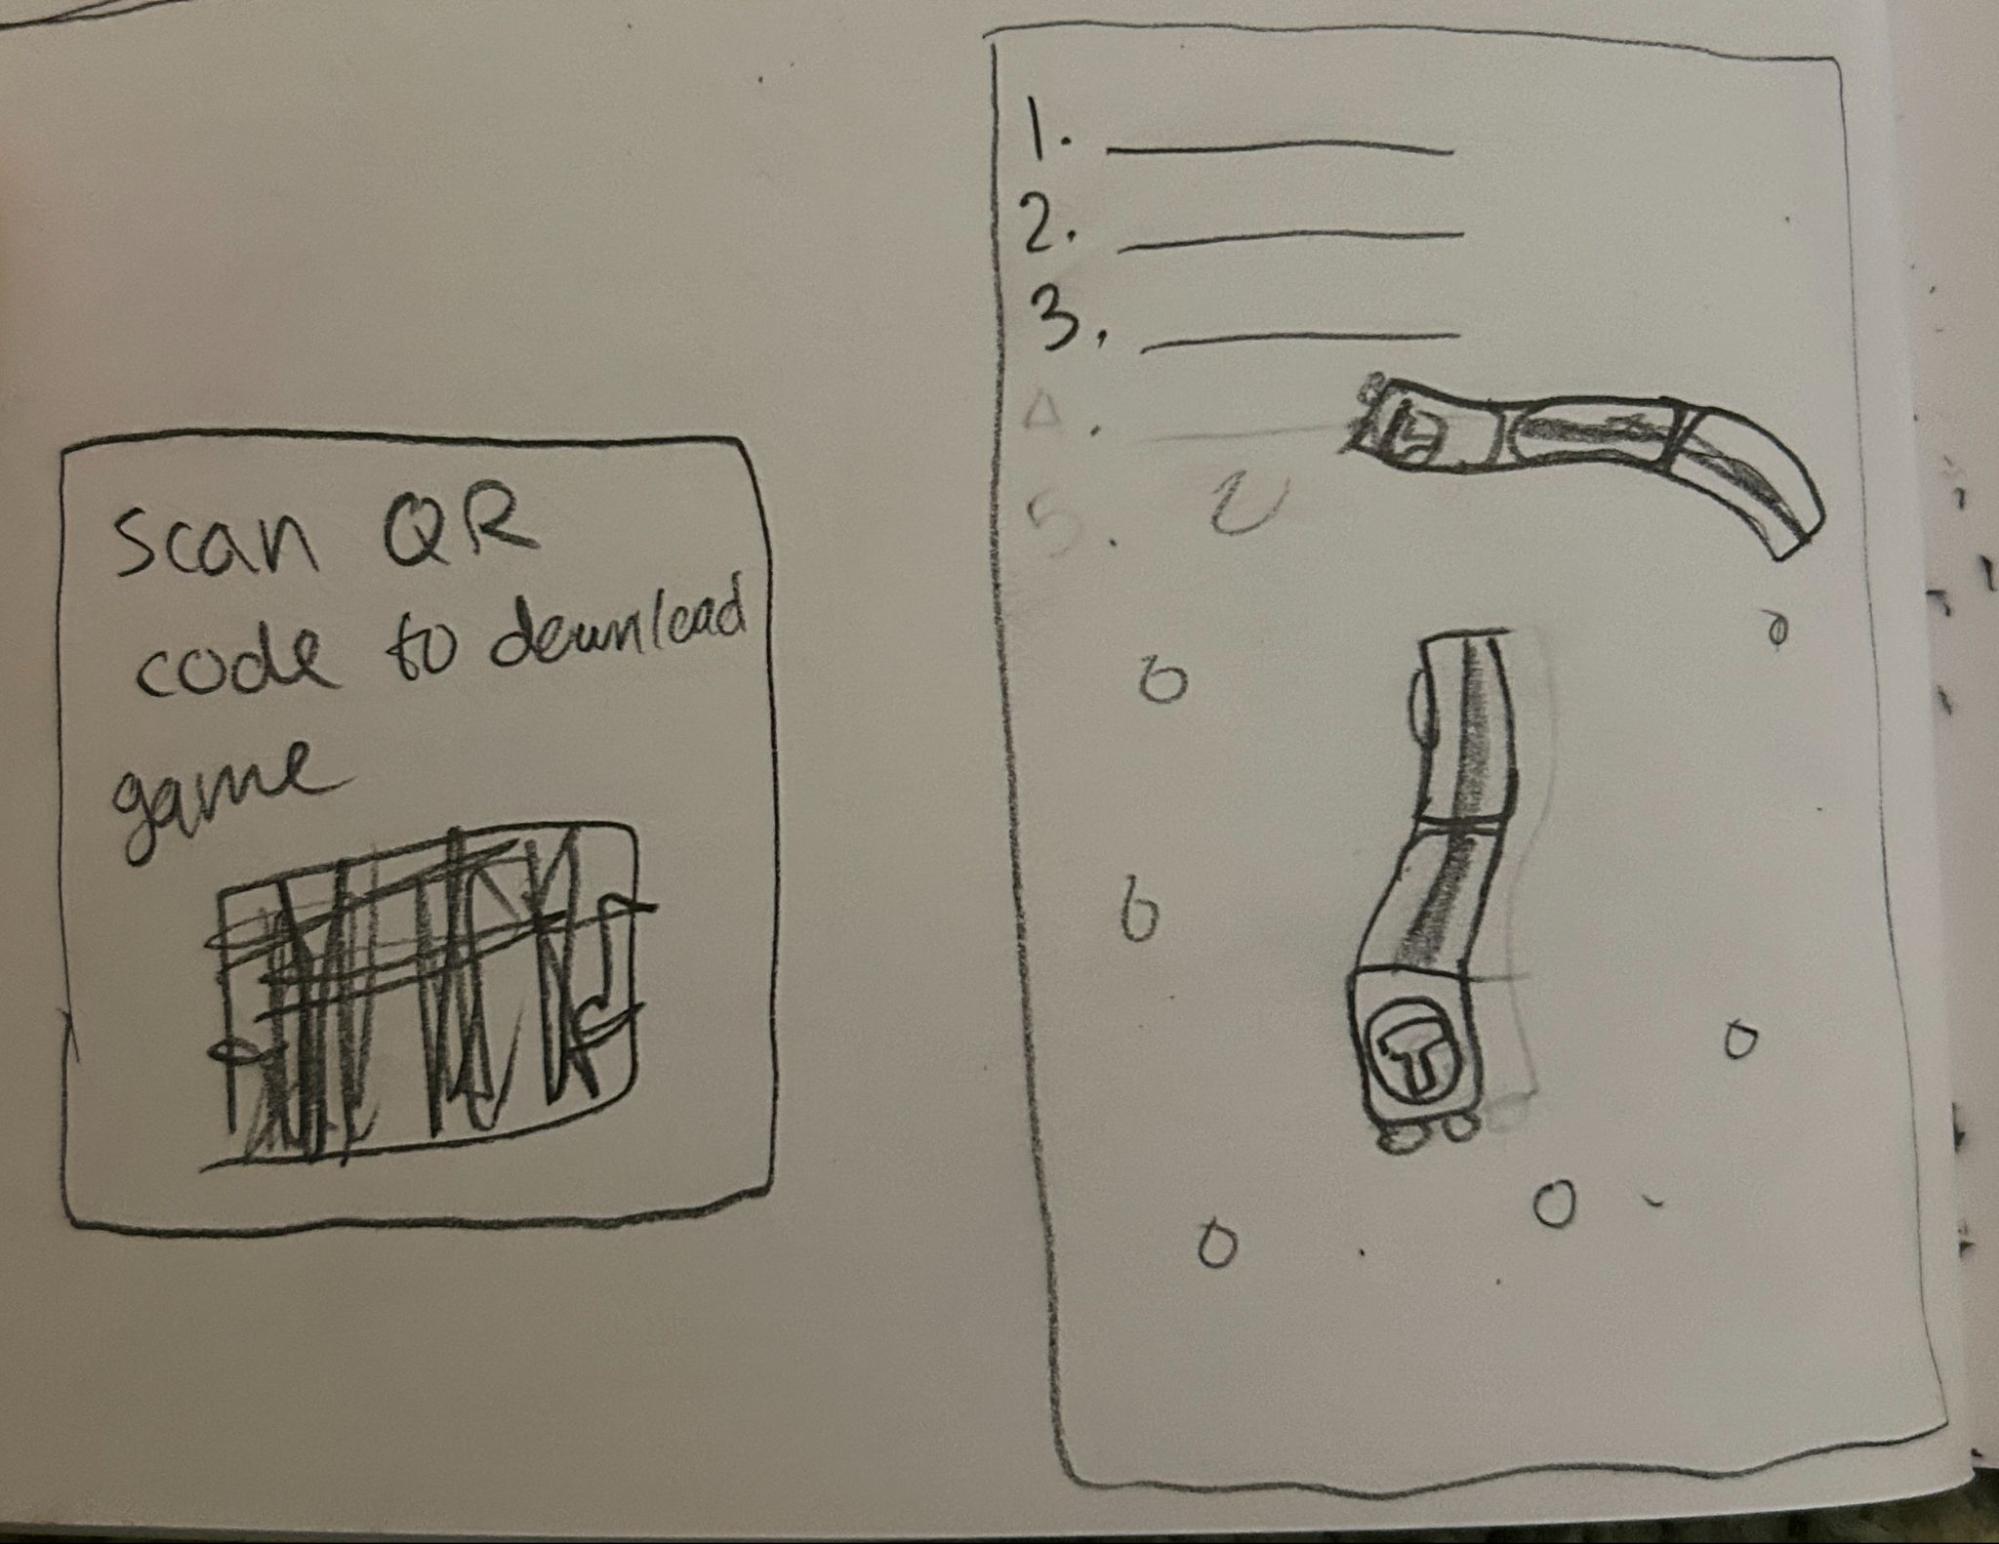 scan QR
code to download
game
1.
2.
3.
4.
5.
T